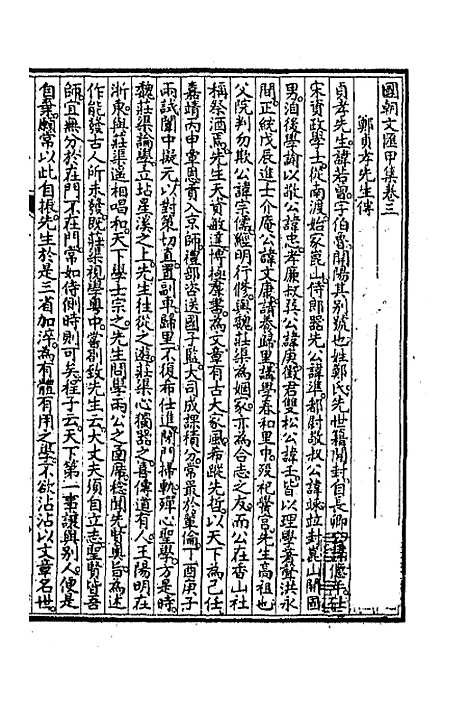 國朝文匯甲集卷三
鄭貞孝先生傳
貞孝先生諱若曾字伯魯開陽其別號也姓鄭氏先世籍開封自長卿公諱億年仕
宋資政學士從南渡始家崑山侍郎器先公諱準都尉敬叔公諱竝封崑山開國
男洎後學諭以敬公諱忠孝廉叔㒷公諱庚徵君雙松公諱壬皆以理學著聲洪永
間正統戊辰進士介庵公諱文康請養歸里講學春和里中沒祀黌宮先生高祖也
父院判勿欺公諱宗儒經明行修與魏莊渠為姻家亦為合志之友而公在香山社
稱祭酒焉先生天資敏達博極羣書為文章有古大家風希蹤先哲以天下為己任
嘉靖丙申韋恩貢入京師禮部咨送國子監大司成課積分常居最倫丁酉庚子
兩試闈中擬元以對策切直置副車歸里不復布仕進閉門掃軌殫心聖學方是時
魏莊渠論學立坫星溪之上先生往從之遊莊渠心獨器之喜傳道有人王陽明在
浙東與莊渠遥相唱和天下學士宗之先生問學兩公之間廣稔聞先賢奧旨為述
作能發古人所未發既莊渠視學粵中嘗劄致先生云大丈夫須自立志聖賢皆吾
師宜無分於在門不在門常如侍側時則可矣程子云天下第一事讓與別人便是
自棄願常以此自振先生於是三省加淬為有體有用之學不欲沾沾以文章名世